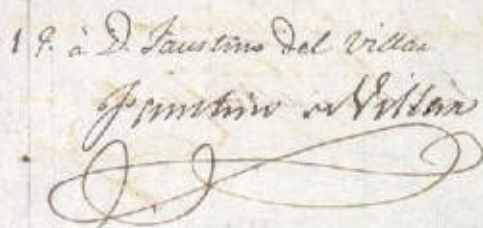 1 P. à D. Faustino del Villar
Faustino Villar